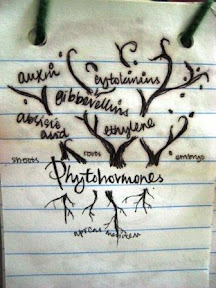 auxin
cytokinins
Gibberellins
absisic
acid
ethylene
shoots
roots
embryo
Phytohormones
apical meristem